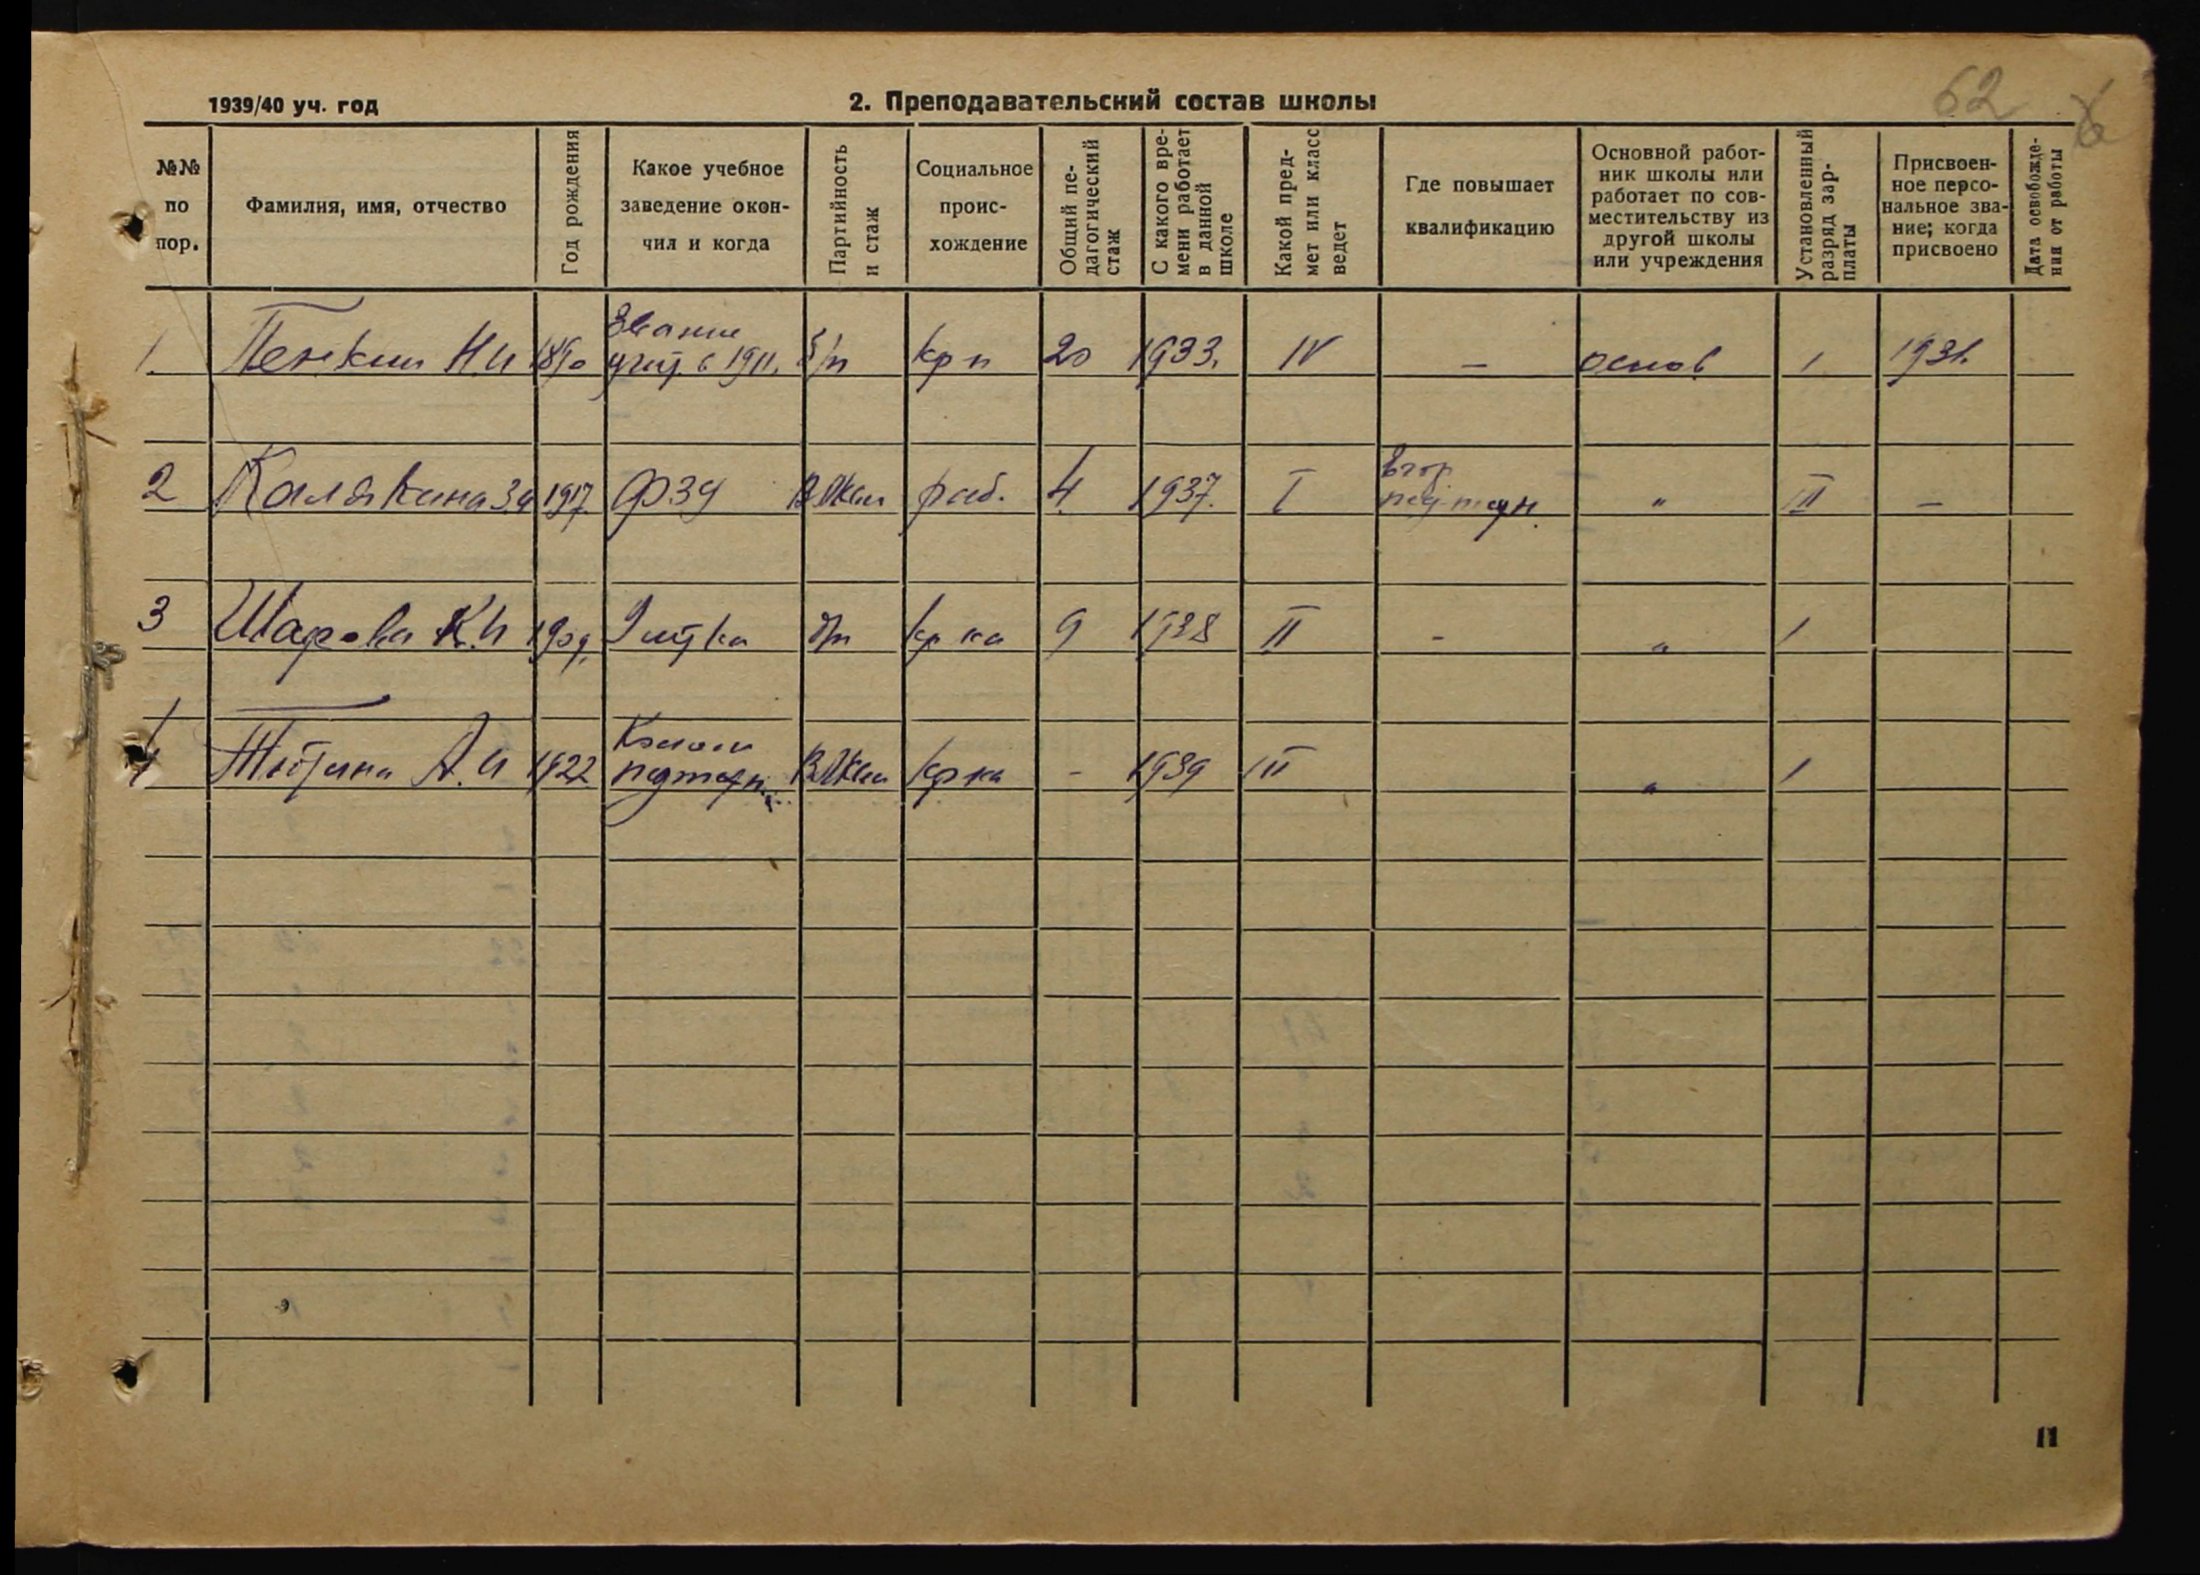 62
1939/40 уч. год
2. Преподавательский состав школы
№№ по пор.
Фамилия, имя, отчество
Год рождения
Какое учебное заведение окон-
чил и когда
Партийность и стаж
Социальное проис-
хождение
Общий пе-
дагогический стаж
С какого вре-
мени работает в данной школе
Какой пред-
мет или класс ведет
Где повышает квалификацию
Основной работ-
ник школы или работает по сов-
местительству из другой школы или учреждения
Установленный разряд зар-
платы
Присвоен-
ное персо-
нальное зва-
ние; когда присвоено
Дата освобожде-
ния от работы
1. Пенкин Н.И 1890 Звание учит. в 1911. б/п кр н 20 1933. IV — основ 1 1931.
2 Калякина З.И 1917. ФЗУ ВЛКСМ раб. 4. 1937. I втор педтехн. " III —
3 Шарова К.И 1909. б/п кр ка 9 1938 II - " 1
4 А.И 1922 педтехн. ВЛКСМ кр ка - 1939 III " 1
11